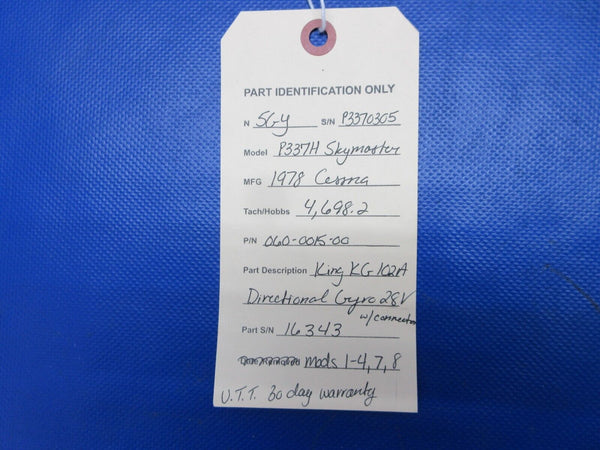 PART IDENTIFICATION ONLY
N 5GY S/N P3370305
Model P337H Skymaster
MFG 1978 Cessna
Tach/Hobbs 4,698.2
P/N 060-0015-00
Part Description King KG102A
Directional Gyro 28V
w/connector
Part S/N 16343
mods 1-4, 7, 8
U.T.T. 30 day warranty